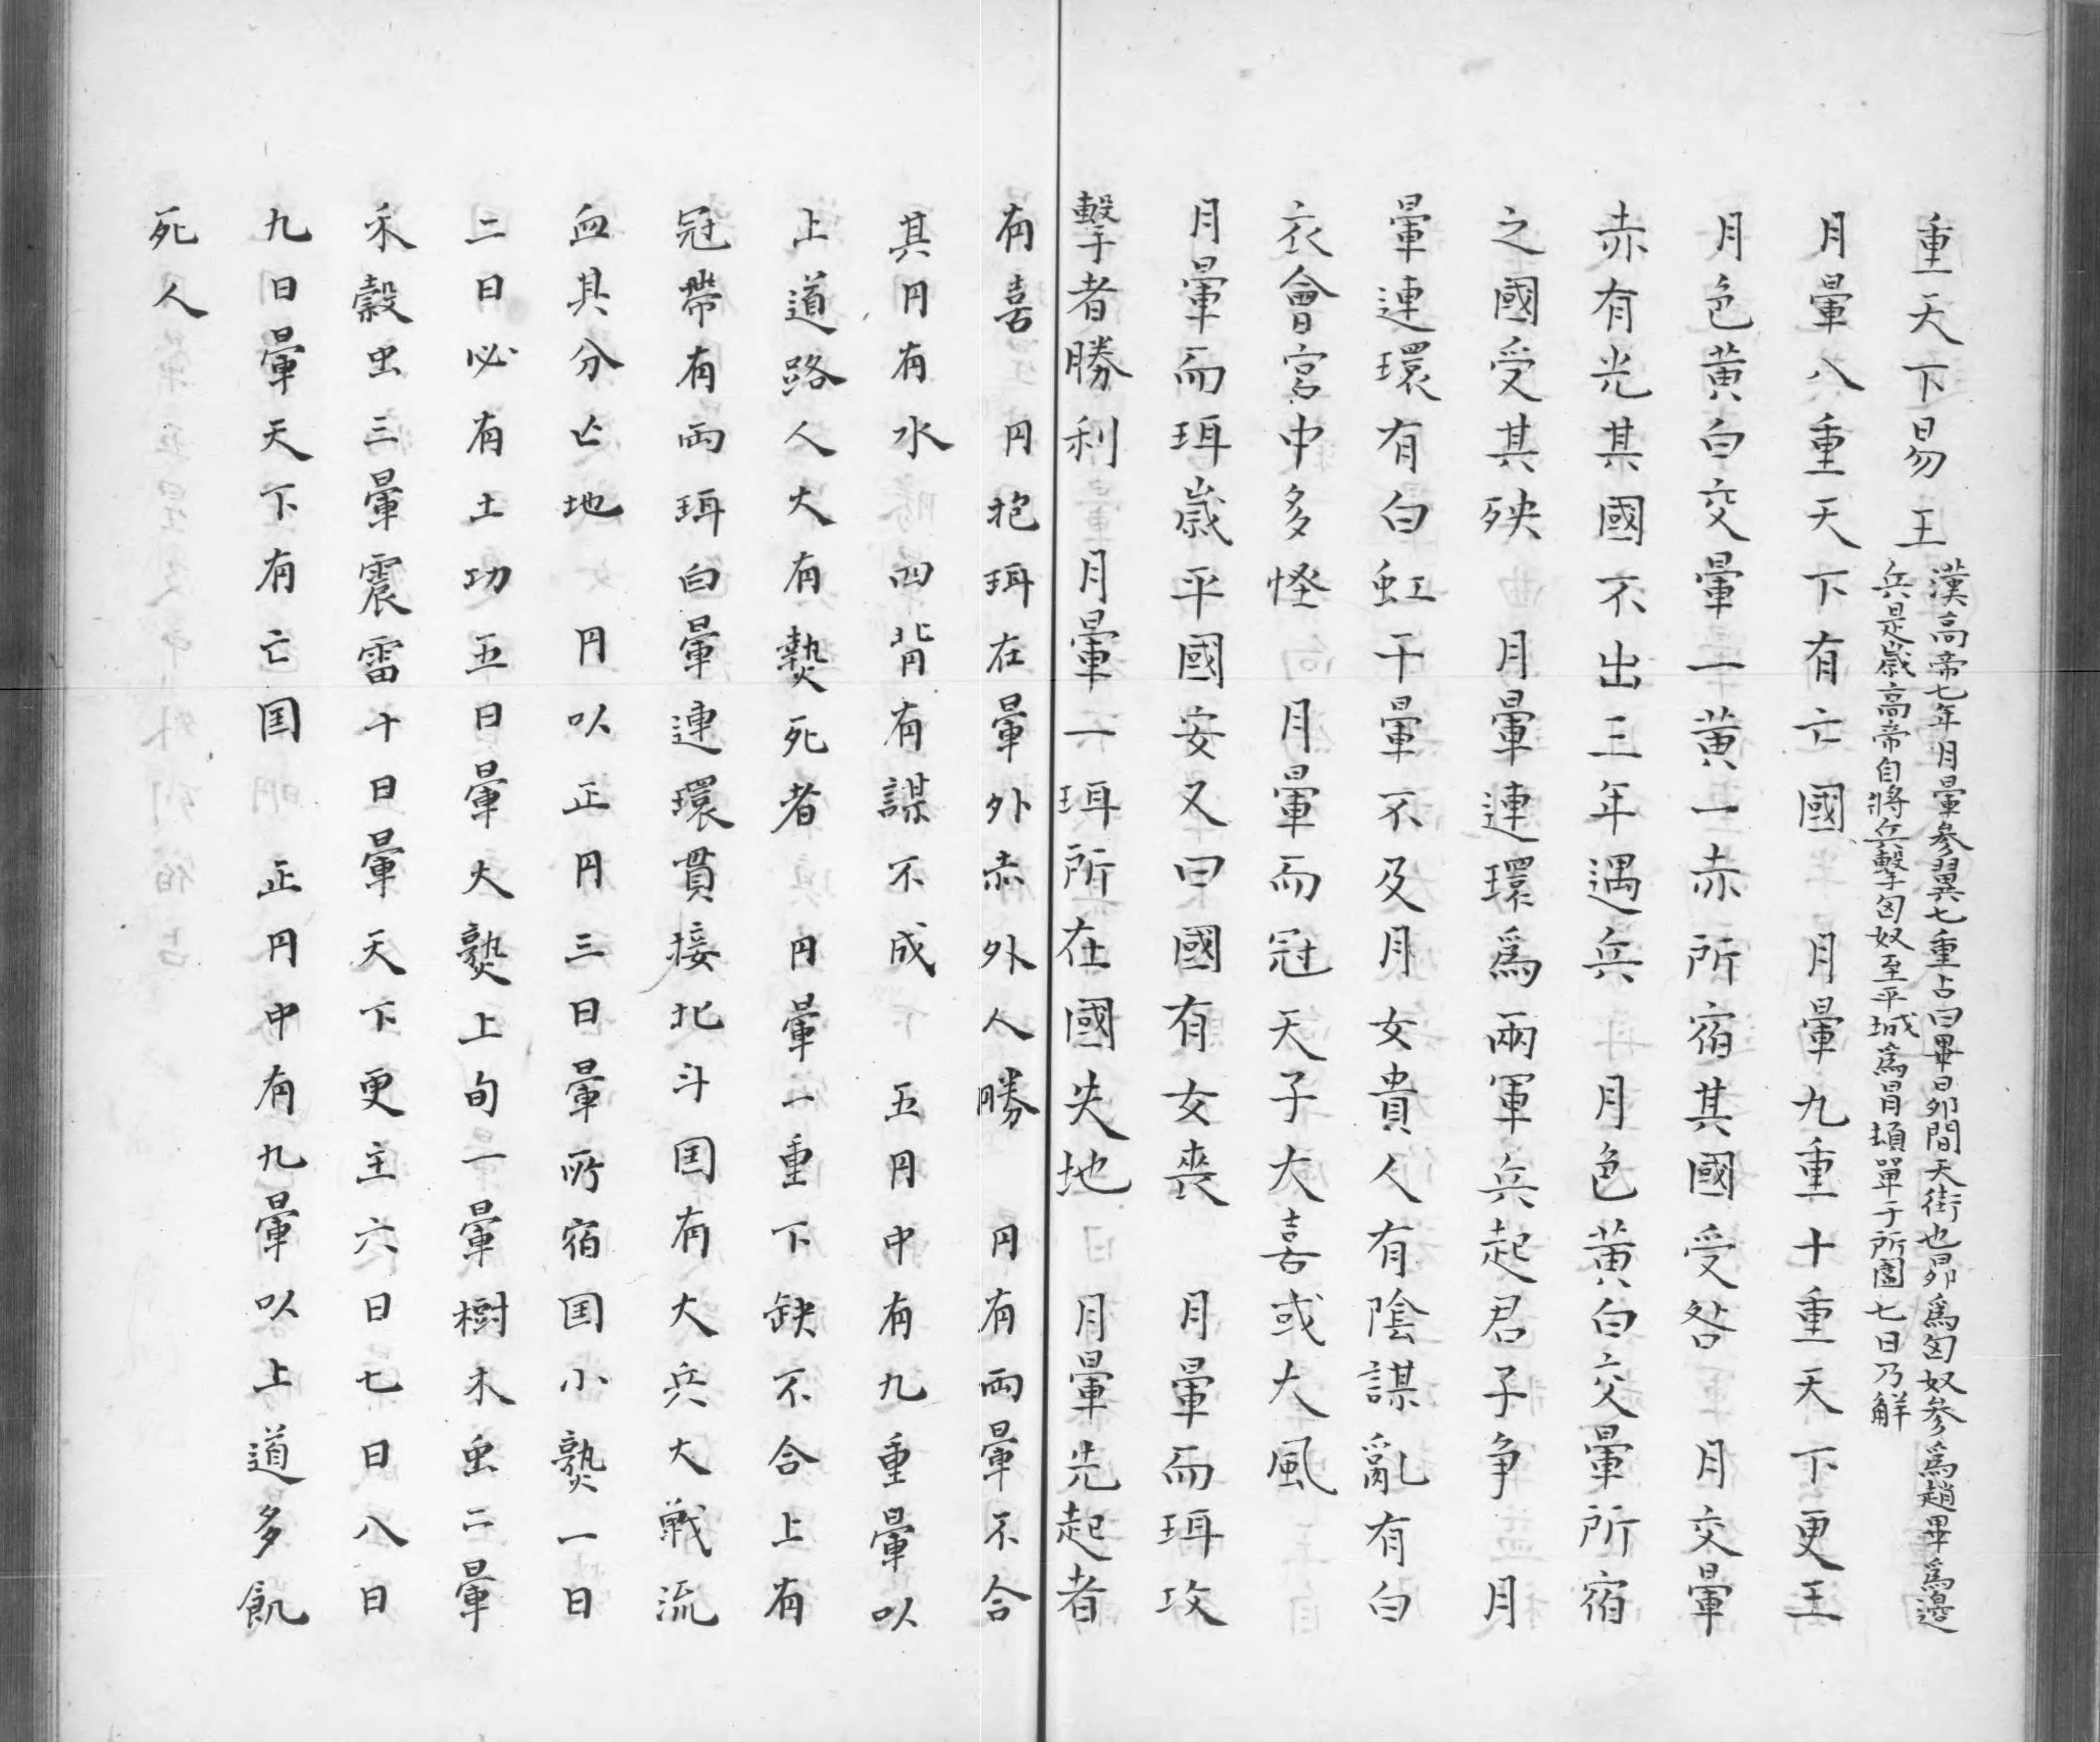 重天下易王
漢高帝七年月暈參畢七重占曰畢昴間天街也昴爲匈奴參爲趙畢爲邊
兵是歲高帝自將兵擊匈奴至平城爲冒頓單于所圍七日乃解
月暈八重天下有亡國　月暈九重十重天下更王
月色黄白交暈一黄一赤所宿其國受咎　月交暈
赤有光其國不出三年遇兵　月色黄白交暈所宿
之國受其殃　月暈連環爲兩軍兵起君子争　月
暈連環有白虹干暈不及月女貴人有陰謀亂有白
衣會宮中多怪　月暈而冠天子大喜或大風
月暈而珥歲平國安又曰國有女喪　月暈而珥攻
擊者勝利　月暈一珥所在國失地　月暈先起者
有喜　円抱珥在暈外赤外人勝　円有兩暈不合
其円有水　四背有謀不成　五円中有九重暈以
上道路人大有𤍠死者　円暈一重下缺不合上有
冠帶有兩珥白暈連環貫接北斗囯有大兵大戦流
血其分亡地　円以正円三日暈所宿囯小𤍠一日
二日必有土功五日暈大𤍠上旬一暈樹木虫二暈
禾穀虫三暈震雷十日暈天下更主六日七日八日
九日暈天下有亡囯　正円中有九暈以上道多飢
死人